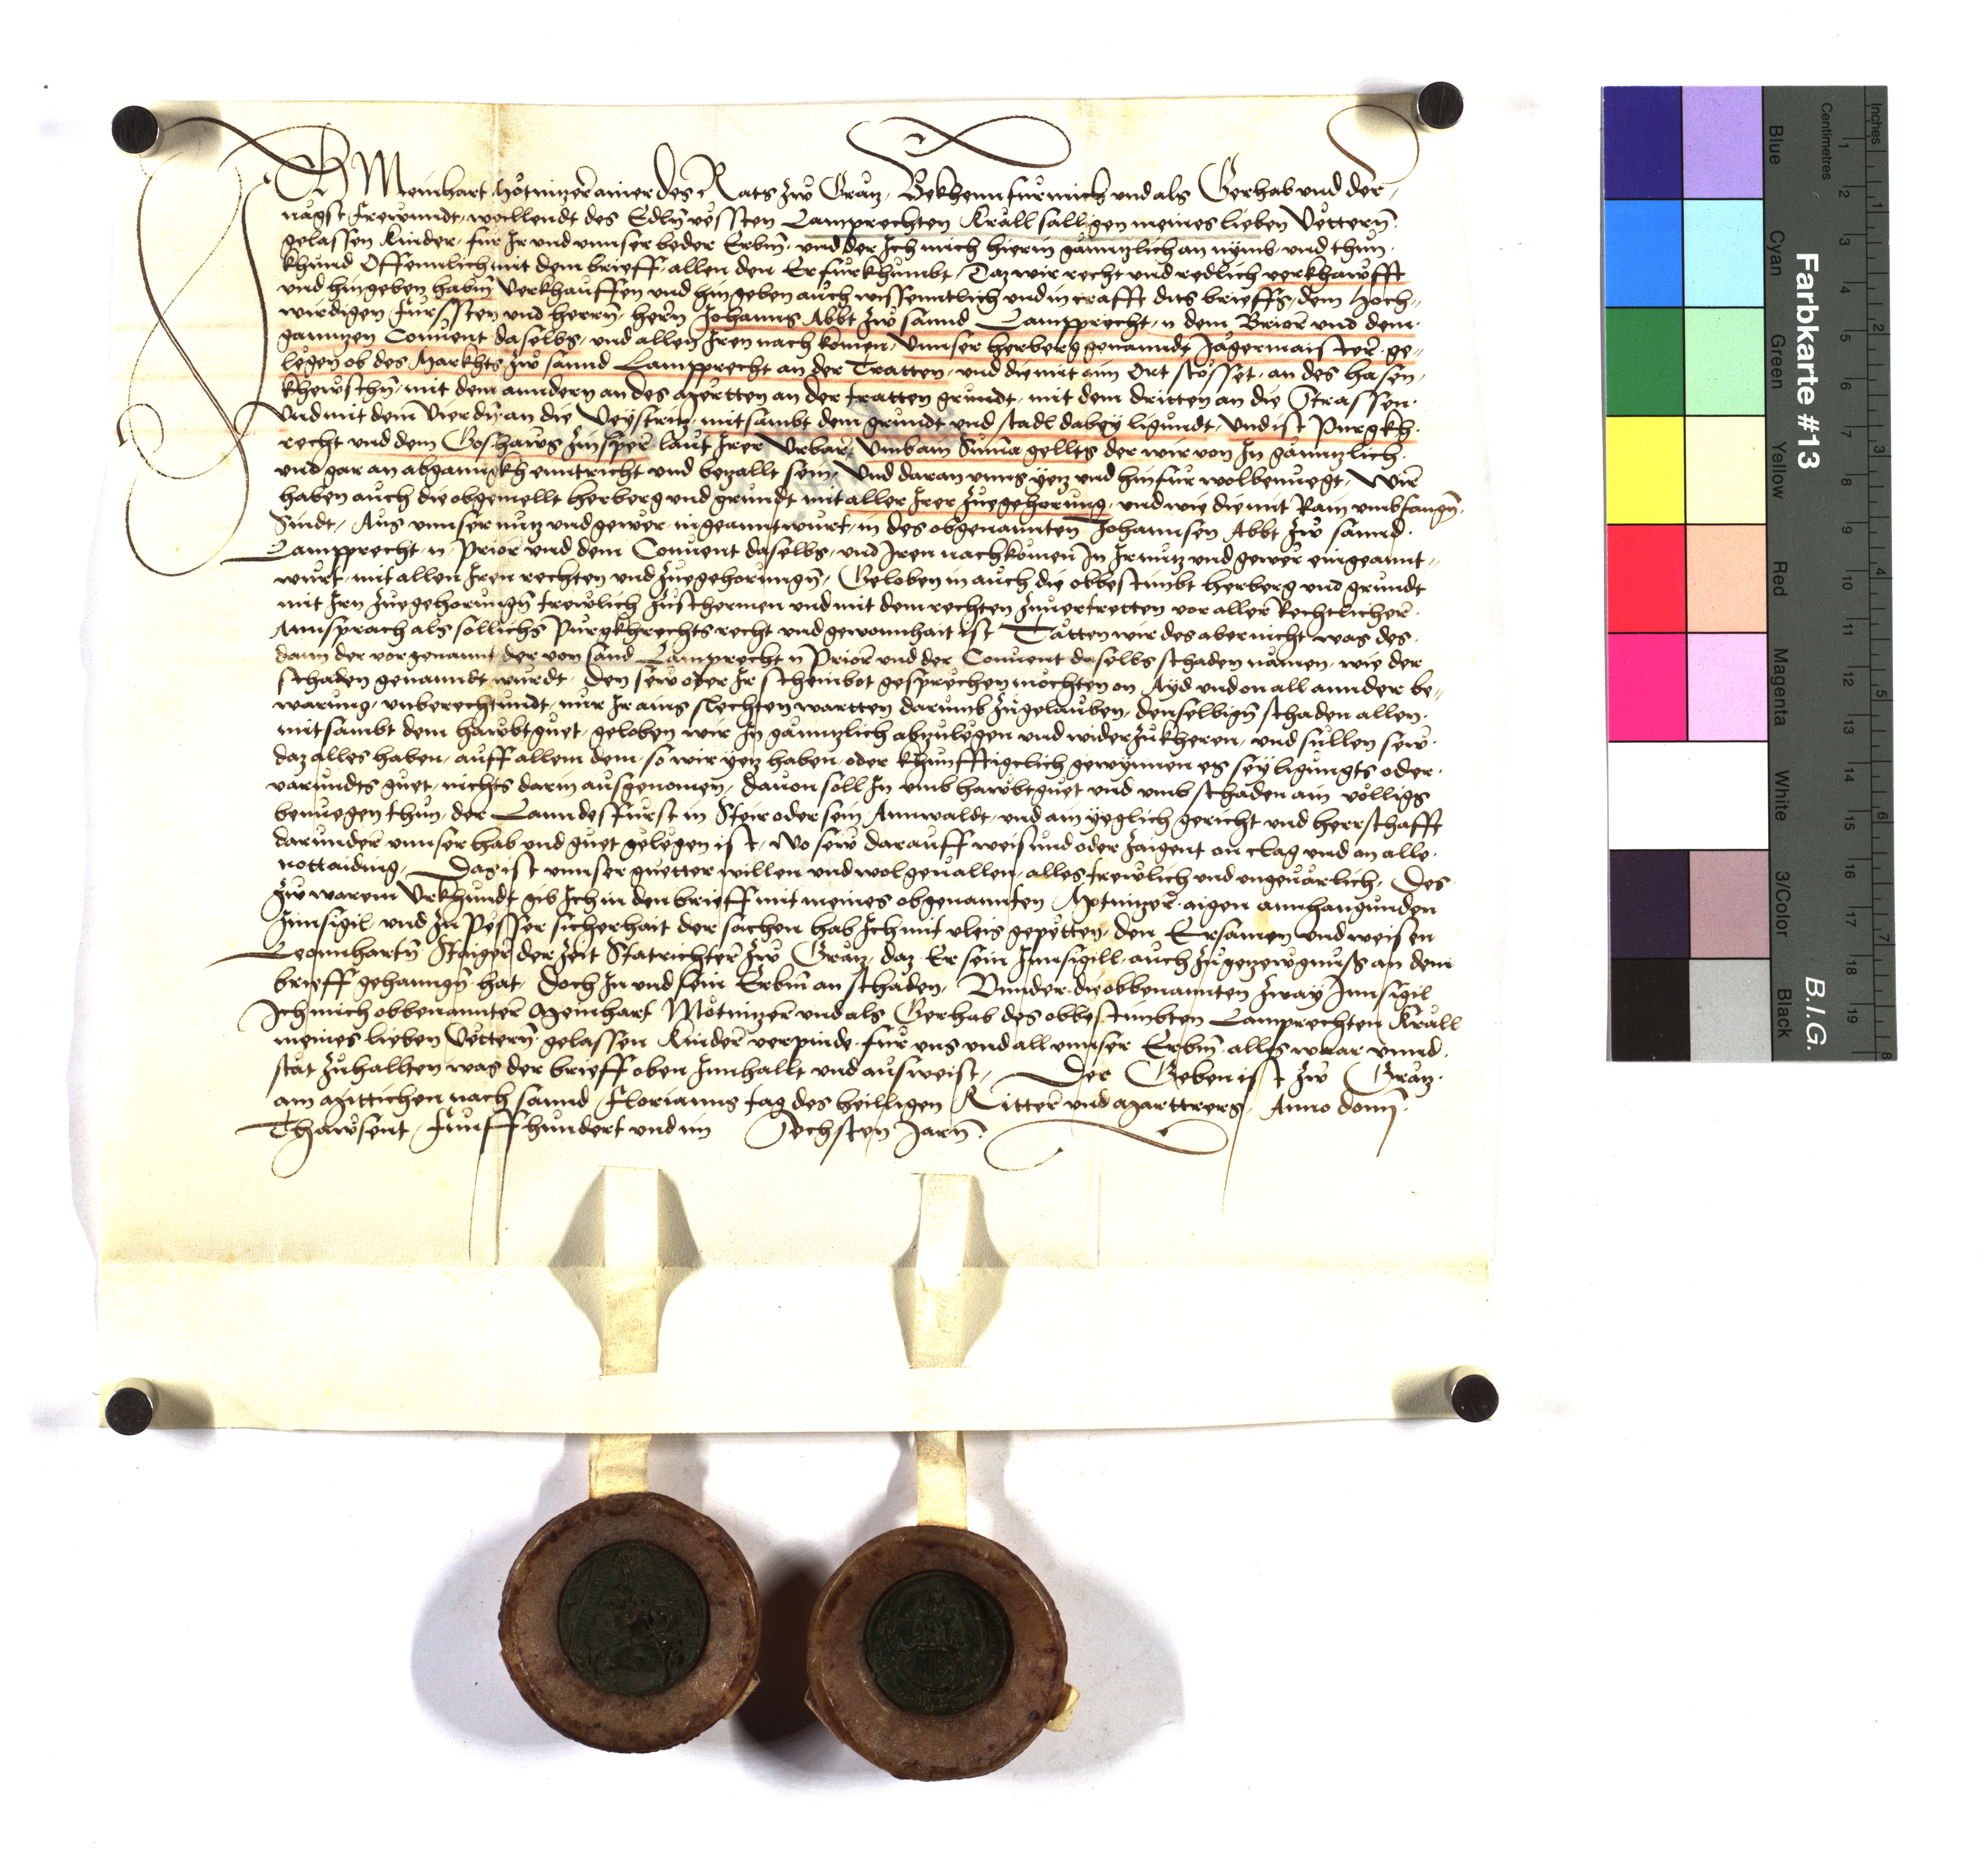 Ich Meinhart Nötnizer ainer des Rats zẘ Grätz, Bekhenn für mich und als Gerhab und der
nägst frewndt weillendt des Edln vessten Lamprechten Kräll säligen meines lieben Vettern
gelassen Kinder, für Ir und unnser beder Erbm̄, und der Ich mich hierin gänntzlich an nymb, und thün
khund Offennlich mit dem brieff, allen den Er fürkhumbt, Daz wir recht und redlich verkhawfft
und hingeben habm̄ Verkhauffen und hingeben auch wissenntlich und in crafft dits brieffs, dem Hoch-
wirdigen Fürssten und herrn, herrn Johanns Abbt zẘ sannd Lamprecht, n dem Briorn und dem
ganntzen Convent daselbs, und allen Iren nach komen, Unnser herberg genanndt Jägermaister, ge-
legen ob des Markhts zẘ sannd Lamprecht an der Tratten, und die mit aim Ort stösset, an des hasen,
mit dem anndern an des Mertten an der tratten grundt, mit dem dritten an die Strassen
Und mit dem Vierdn̄ an die Veystritz, mitsambt dem grundt und stadl dabey ligundt, Und ist Purgkh-
recht und dem Goshaws laut Irer Urbar, Umb ain Suma gellts der wir von In gänntzlich
und gar an abganngkh enntricht und betzallt sein, Und daran unns yetz und hinfür wolbenuegt, Wir
haben auch die obgemellt herberg und grundt mit aller Irer zuegehorung, und wie die mit Rain umbfangn̄
Sindt, Aus unnser nutz und gewer, ingeanntwurt, in des obgenannten Johannsen Abbt zẘ sannd
Lamprecht, n Prior und dem Convent daselbs, und Iren nachkomen In Ir nutz und gewer eingeannt-
wurt, mit allen Iren rechten und zuegehorungn̄, Geloben in auch die obbestimbt herberg und grundt
mit Irn zuegehorungn̄ trewlich zuschermen und mit dem rechten zuvertretten vor aller Rechtlicher
Annsprach als sollichs Purgkhrechts recht und gewonnhait ist Tätten wir des aber nicht was des
dann der vorgenannt der von sand Lamprecht n Prior und der Convent daselbs schaden nämen, wie der
schaden genanndt wurdt, Den sew oder Ir scheinbot gesprechen möchten on Ayd und on all annder be-
warung, unberechtundt, nur Ir ains slechten wartten darumb zugelauben, denselbign̄ schaden allen
mitsambt dem hawbtguet, geloben wir In gänntzlich abzulegen und widerzukheren, und sullen sew
daz alles haben, auff allem dem, so wir yetz haben, oder khunfftigclich gewynnen es sey ligundts oder
varundts guet, nichts darin ausgenomen, davon soll In umb hawbtguet und umb schaden ain völligs
benuegen thun, der Lanndesfürst in Steir oder sein Annwaldt, und ain yeglich gericht und herrschafft
darunder unnser hab und guet gelegen ist, Wo sew darauff weisund oder zaigent on clag und an alle
nottaiding, Daz ist unnser guetter willen und wolgevallen, alles trewlich und ungevärlich, Des
zẘ warem Urkhundt gib Ich in den brieff mit meines obgenannten Nötnizer aigen annhangunden
Innsigil, und zu pesser sicherhait der sachen hab Ich mit vleis gepetten, den Ersamen und weisen
Leonnhartn̄ Staiger der zeit Statrichter zẘ Grätz, daz Er sein Innsigill, auch zu getzewgnuss an dem
brieff gehanngn̄ hat, Doch In und sein Erbm̄ an schaden, Unnder die obbenannten zway Innsigil
Ich mich obbenannter Meinhart Nötnizer und als Gerhab des obbestimbten Lamprechten Kräll
meines lieben Vettern gelassen Kinder verpinde für uns und all unnser Erbm̄, alles waar unnd
stät zuhallten was der brieff oben Innhallt und ausweist, Der Geben ist zẘ Grätz
am Mittichen nach sannd Florianns tag des heilligen Ritter und Marttrers, Anno domj̄
Thawsent Fünffhundert und im Sechsten Jarn̄
Farbkarte #13
B.I.G.
Inches
Centimetres
1 2 3 4 5 6 7 8
1 2 3 4 5 6 7 8 9 10 11 12 13 14 15 16 17 18 19
Blue Cyan Green Yellow Red Magenta White 3/Color Black